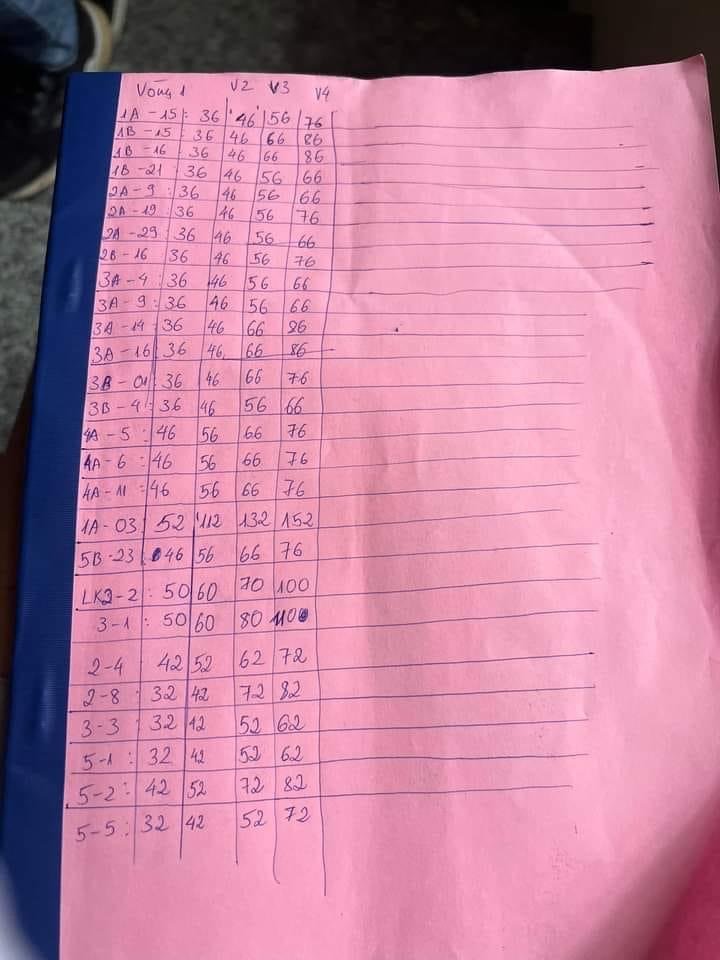 Vòng 1 V2 V3 V4
1A - 15: 36 46 56 76
1B - 15: 36 46 66 86
1B - 16: 36 46 66 86
1B - 21: 36 46 56 66
2A - 9: 36 46 56 66
2A - 19: 36 46 56 76
2A - 29: 36 46 56 66
2B - 16: 36 46 56 76
3A - 4: 36 46 56 66
3A - 9: 36 46 56 66
3A - 14: 36 46 66 86
3A - 16: 36 46 66 86
3B - 01: 36 46 66 76
3B - 4: 36 46 56 66
4A - 5: 46 56 66 76
4A - 6: 46 56 66 76
4A - 11: 46 56 66 76
1A - 03: 52 112 132 152
5B - 23: 46 56 66 76
LK2 - 2: 50 60 70 100
3 - 1: 50 60 80 110
2 - 4 42 52 62 72
2 - 8: 32 42 72 82
3 - 3: 32 42 52 62
5 - 1: 32 42 52 62
5 - 2: 42 52 72 82
5 - 5: 32 42 52 72